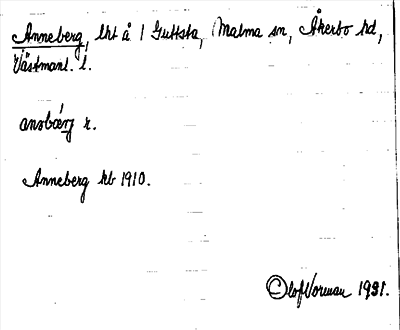 Anneberg, lht å 1 Guttsta, Malma sn, Åkerbo hd,
Västmanl. l.
ansbärj r.
Anneberg kb 1910.
Olof Vorman 1931.